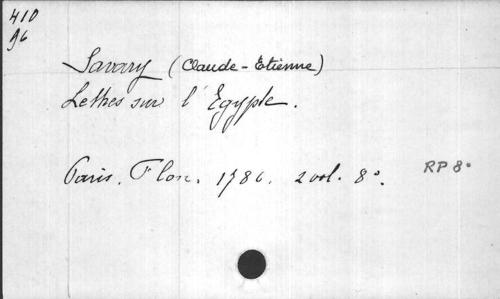 410
96
Savary (Claude-Etienne)
Lettres sur l'Egypte.
Paris. Flon. 1786. 2 vol. 8°.
RP 8°